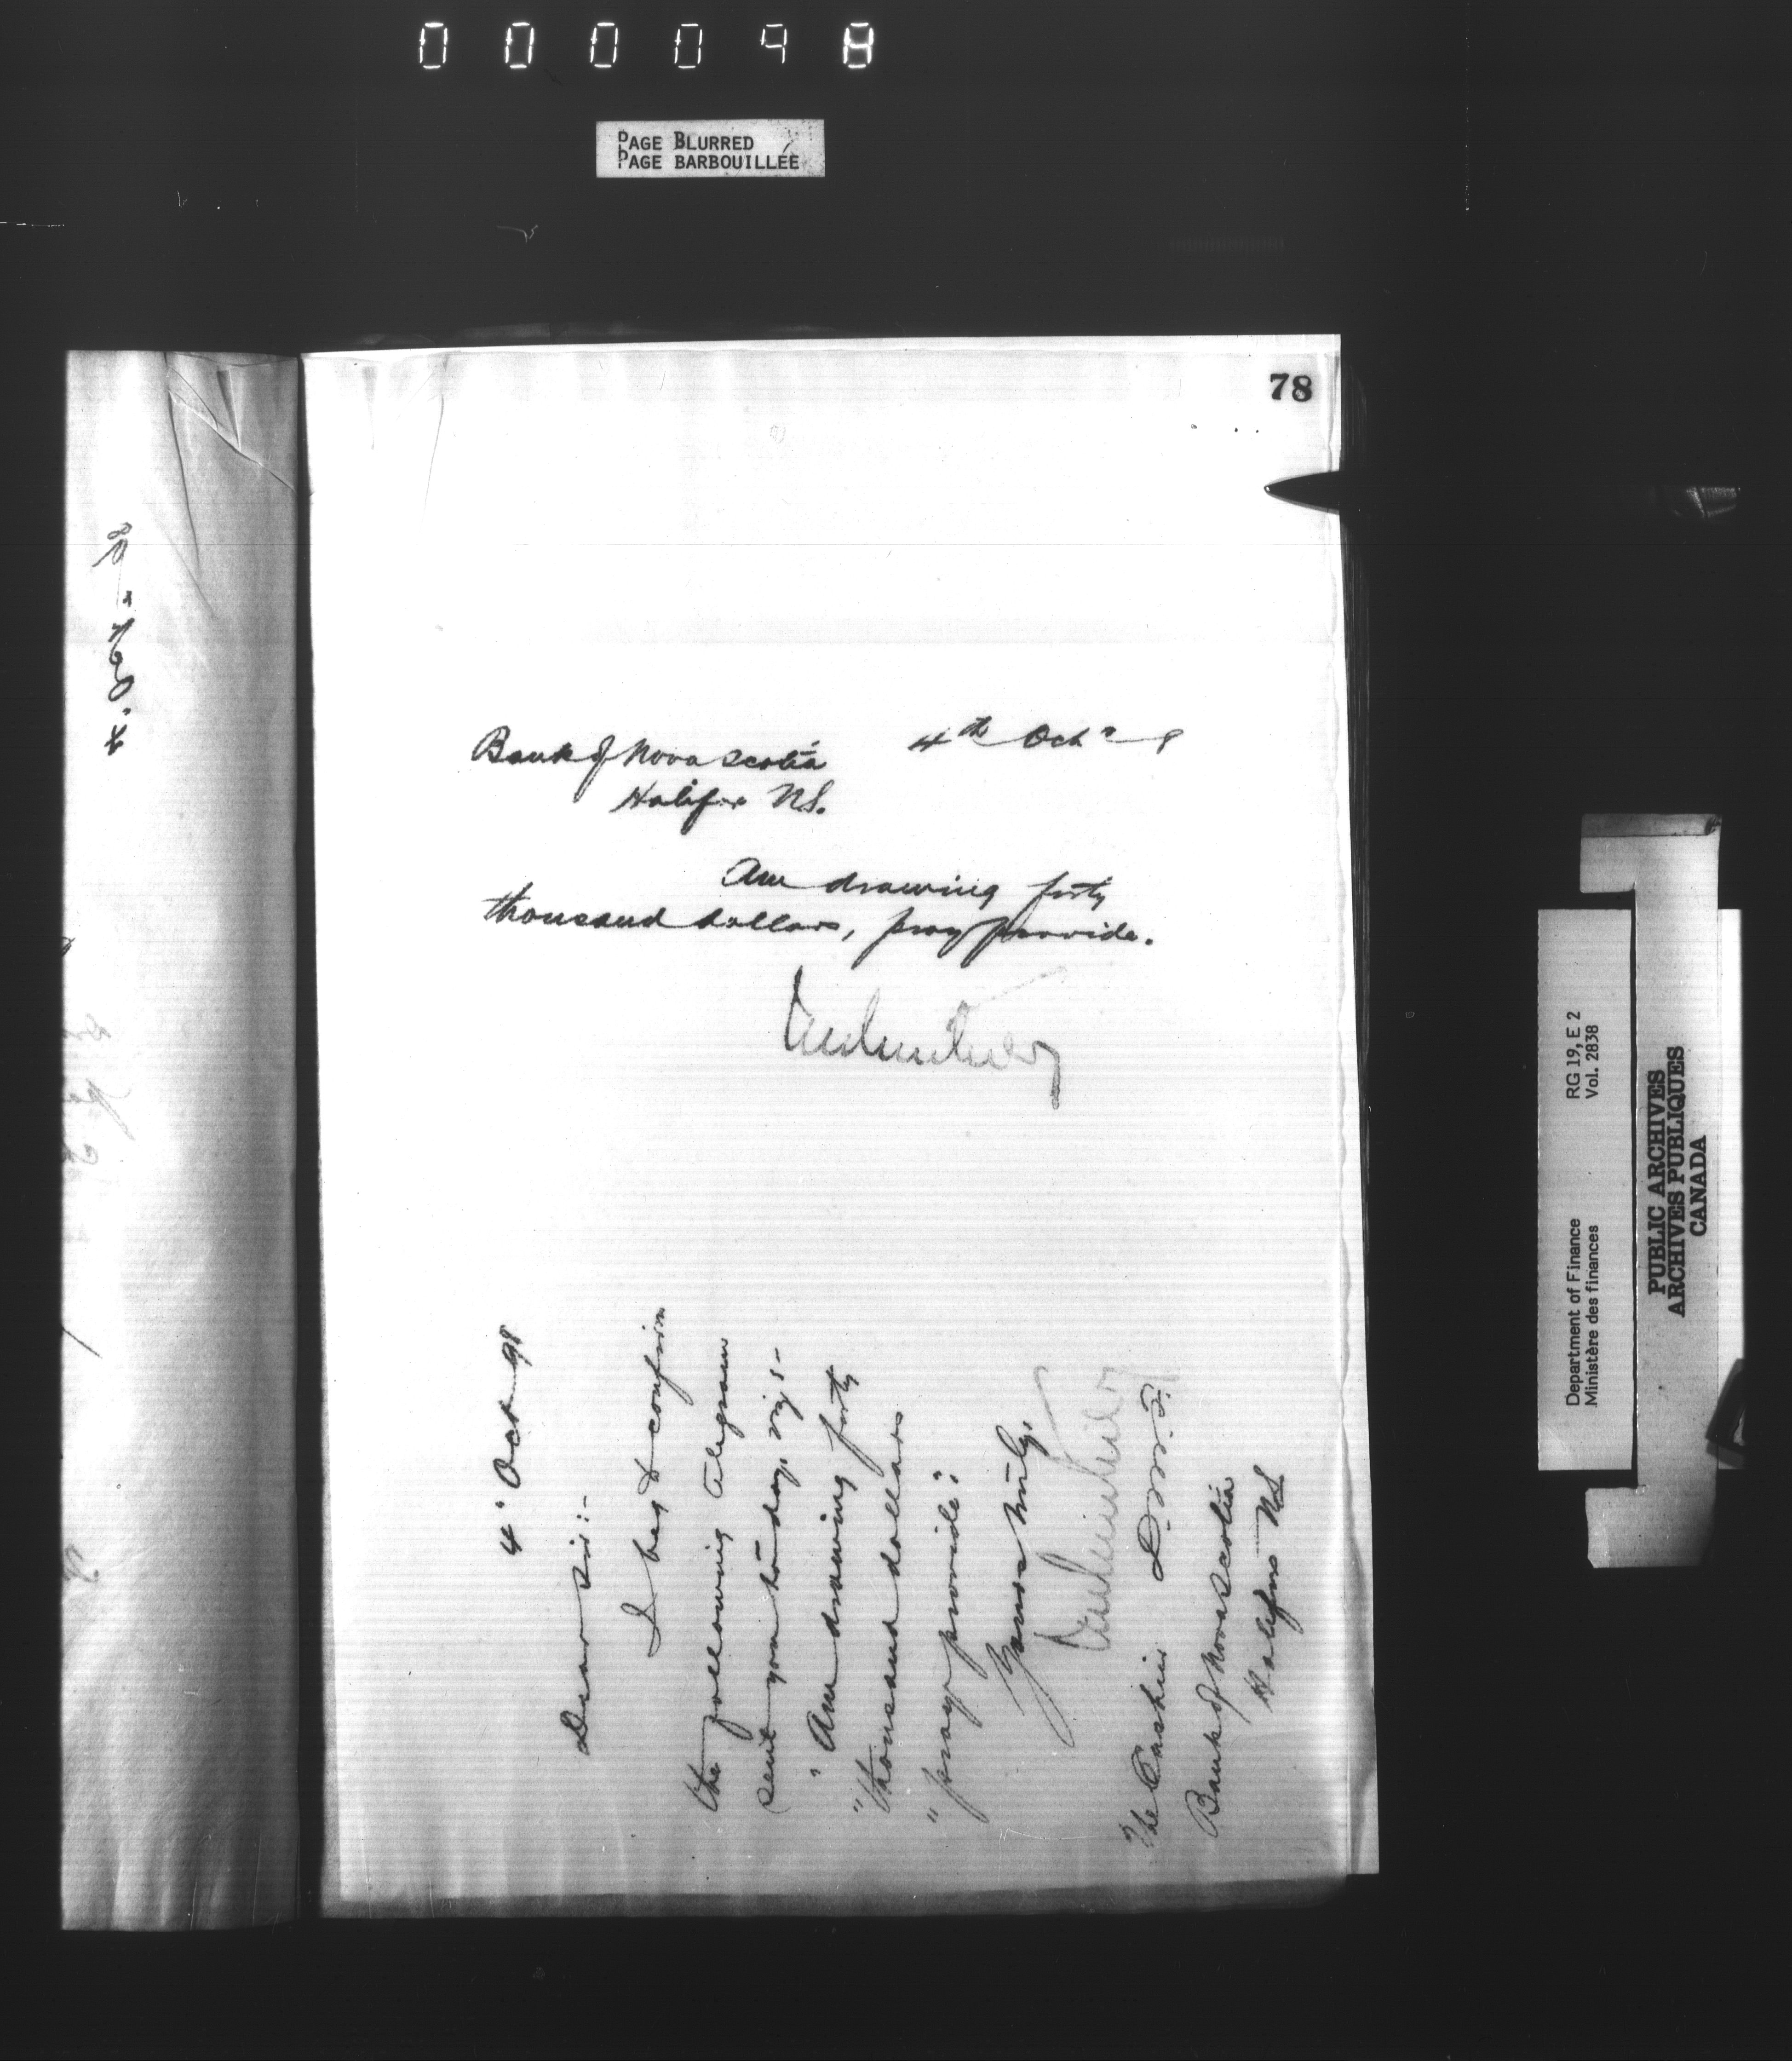 PAGE BLURRED
PAGE BARBOUILLÉE
78
4th Oct
Bank of Nova Scotia
Halifax N.S.
Am drawing forty
thousand dollars, pray provide.
4" Oct 98
Dear Sir:-
I beg to confirm
the following telegram
sent you to-day, viz:-
"Am drawing forty
"thousand dollars
"pray provide".
Yours truly,
D.M.F.
The Cashier
Bank of Nova Scotia
Halifax N.S.
Department of Finance RG 19, E 2
Ministère des finances Vol. 2838
PUBLIC ARCHIVES
ARCHIVES PUBLIQUES
CANADA